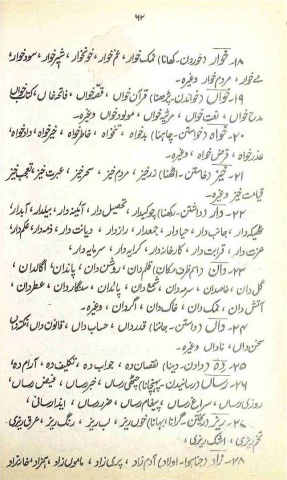 ۶۲
۱۸۔ خوار (خوردن۔ کھانا) نمک خوار، غم خوار، خونخوار، شیر خوار، سود خوار،
مے خوار، مردم خوار وغیرہ۔
۱۹۔ خواں (خواندن۔ پڑھنا) قرآن خواں، قصہ خواں، فاتحہ خاں، کتاب خواں
مدح خواں، نعت خواں، مرثیہ خواں، مولود خواں وغیرہ۔
۲۰۔ خواہ (خواستن۔ چاہنا) بدخواہ، تنخواہ، خاطر خواہ، خیر خواہ، داد خواہ،
عذر خواہ، قرض خواہ، وغیرہ۔
۲۱۔ خیز (خاستن۔ اٹھنا) زرخیز، مردم خیز، سحر خیز، عبرت خیز، تعجب خیز
قیامت خیز وغیرہ۔
۲۲۔ دار (داشتن۔ رکھنا) چوکیدار، تحصیل دار، آئینہ دار، بیلدار، آبدار،
ٹھیکیدار، جانب دار، حیادار، جمعدار، رازدار، دیانت دار، ذمہ دار، علم دار،
عزت دار، قرابت دار، کارخانہ دار، کرایہ دار، سرمایہ دار،
۲۳۔ دان (اسم ظرف مکان) قلمدان، روشن دان، پاندان، اگالدان،
گل دان، خاصدان، سرمہ دان، شمع دان، پائدان، سنگار دان، عطر دان،
آتش دان، نمک دان، خاک دان، اگردان، وغیرہ۔
۲۴۔ داں (دانستن۔ جاننا) قدرداں، حساب داں، قانون داں، نکتہ داں
سخن داں، ناداں وغیرہ۔
۲۵۔ دہ (دادن۔ دینا) نقصان دہ، جواب دہ، تکلیف دہ، آرام دہ،
۲۶۔ رساں (رسانیدن۔ پہنچانا) چٹھی رساں، خبر رساں، فیض رساں،
روزی رساں، سراغ رساں، پیغام رساں، ضرر رساں، ایذا رسانی،
۲۷۔ ریز (ریختن۔ گرانا، بہانا) خوں ریز، لب ریز، رنگ ریز، عرق ریزی
تخم ریزی، اشک ریزی،
۲۸۔ زاد (جنا ہوا۔ اولاد) آدم زاد، پری زاد، ماموں زاد، ہمزاد، خانہ زاد